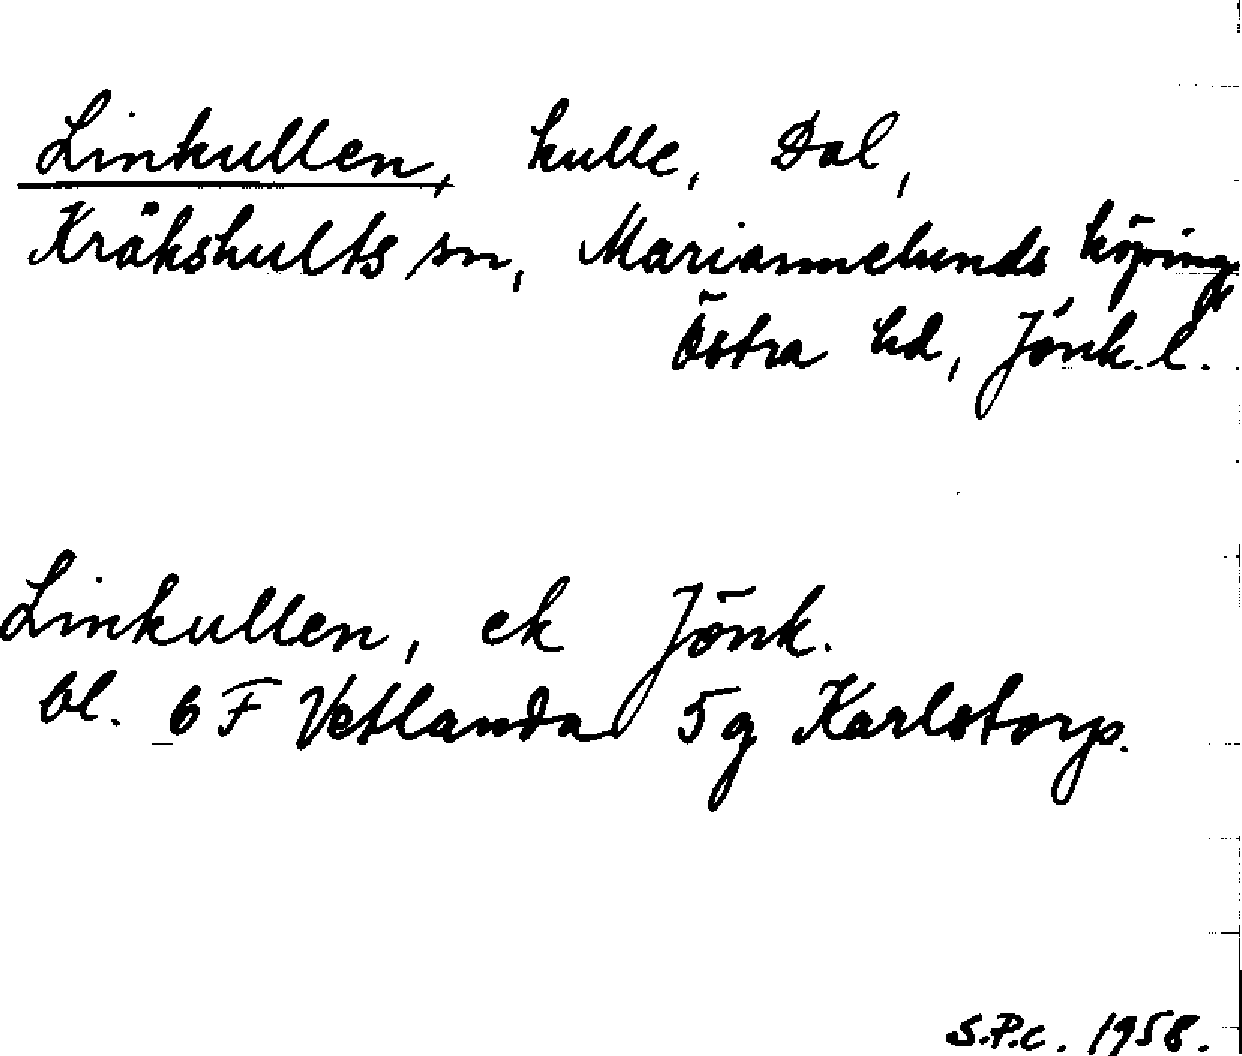 Linkullen, kulle, Dal,
Kråkshults sn, Mariannelunds köping,
Östra hd, Jönk. l.
Linkullen, ek Jönk.
bl. 6 F Vetlanda 5 g Karlstorp.
S.P.C. 1958.